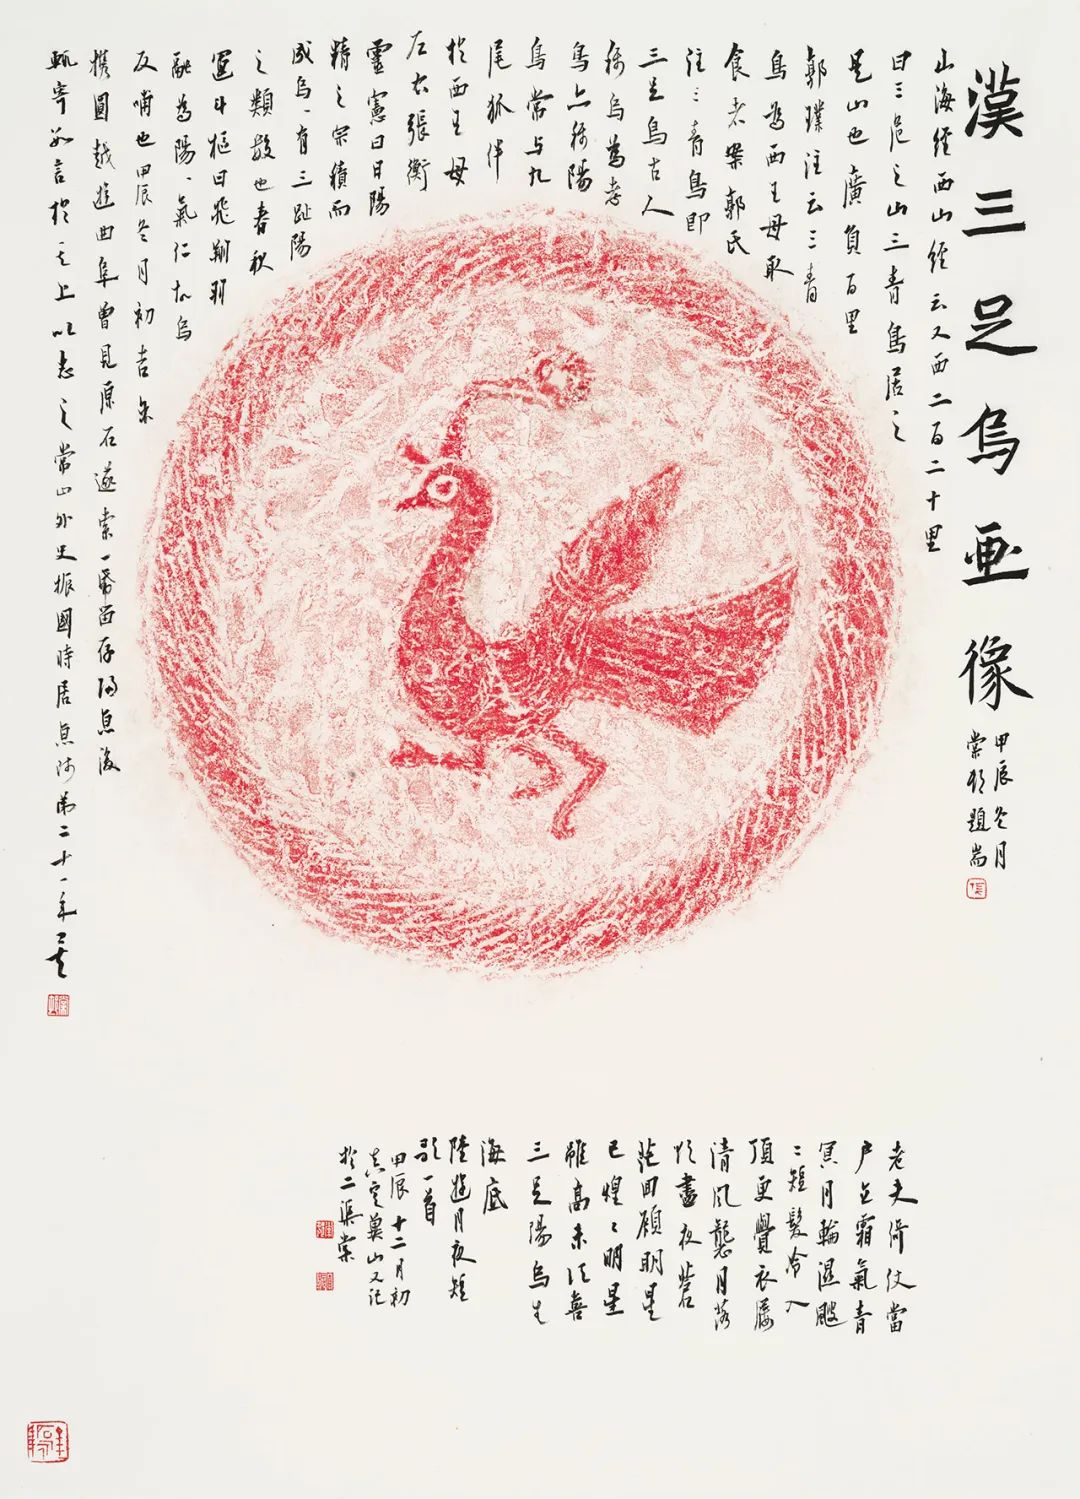 漢三足烏画像
甲辰冬月
棠邨題耑
山海經西山經云又西二百二十里
曰三危之山三青鳥居之
是山也廣員百里
郭璞注云三青
鳥為西王母取
食者案郭氏
注三青鳥即
三足烏古人
稱烏為孝
鳥亦稱陽
鳥常与九
尾狐伴
於西王母
左右張衡
靈憲曰日陽
精之宗積而
成烏烏有三趾陽
之類數也春秋
運斗樞曰飛翔羽
翮為陽陽氣仁故烏
反哺也甲辰冬月初吉余
携圓越遊曲阜曾見原石遂索一帋留存得息後
輒寄如言於其上以志之常山外史振國時居息陬第二十一年矣
老夫倚仗當
戶立霜氣青
冥月輪濕颼
颼短髮冷入
頂更覺衣屨
清風襲月落
欲盡夜蒼
茫回顧明星
已煌煌明星
雖高未須喜
三足陽烏生
海底
陸遊月夜短
歌一首
甲辰十二月初
真定冀山又記
於二渠棠